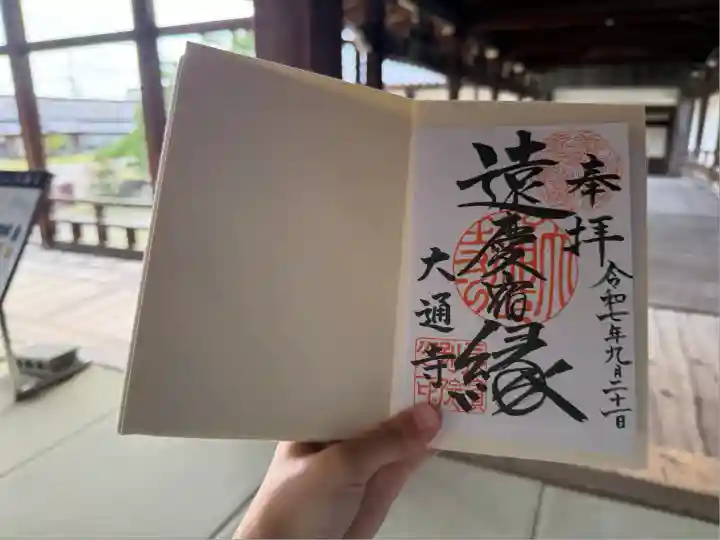 奉拝
令和七年九月二十一日
遠慶宿縁
大通寺